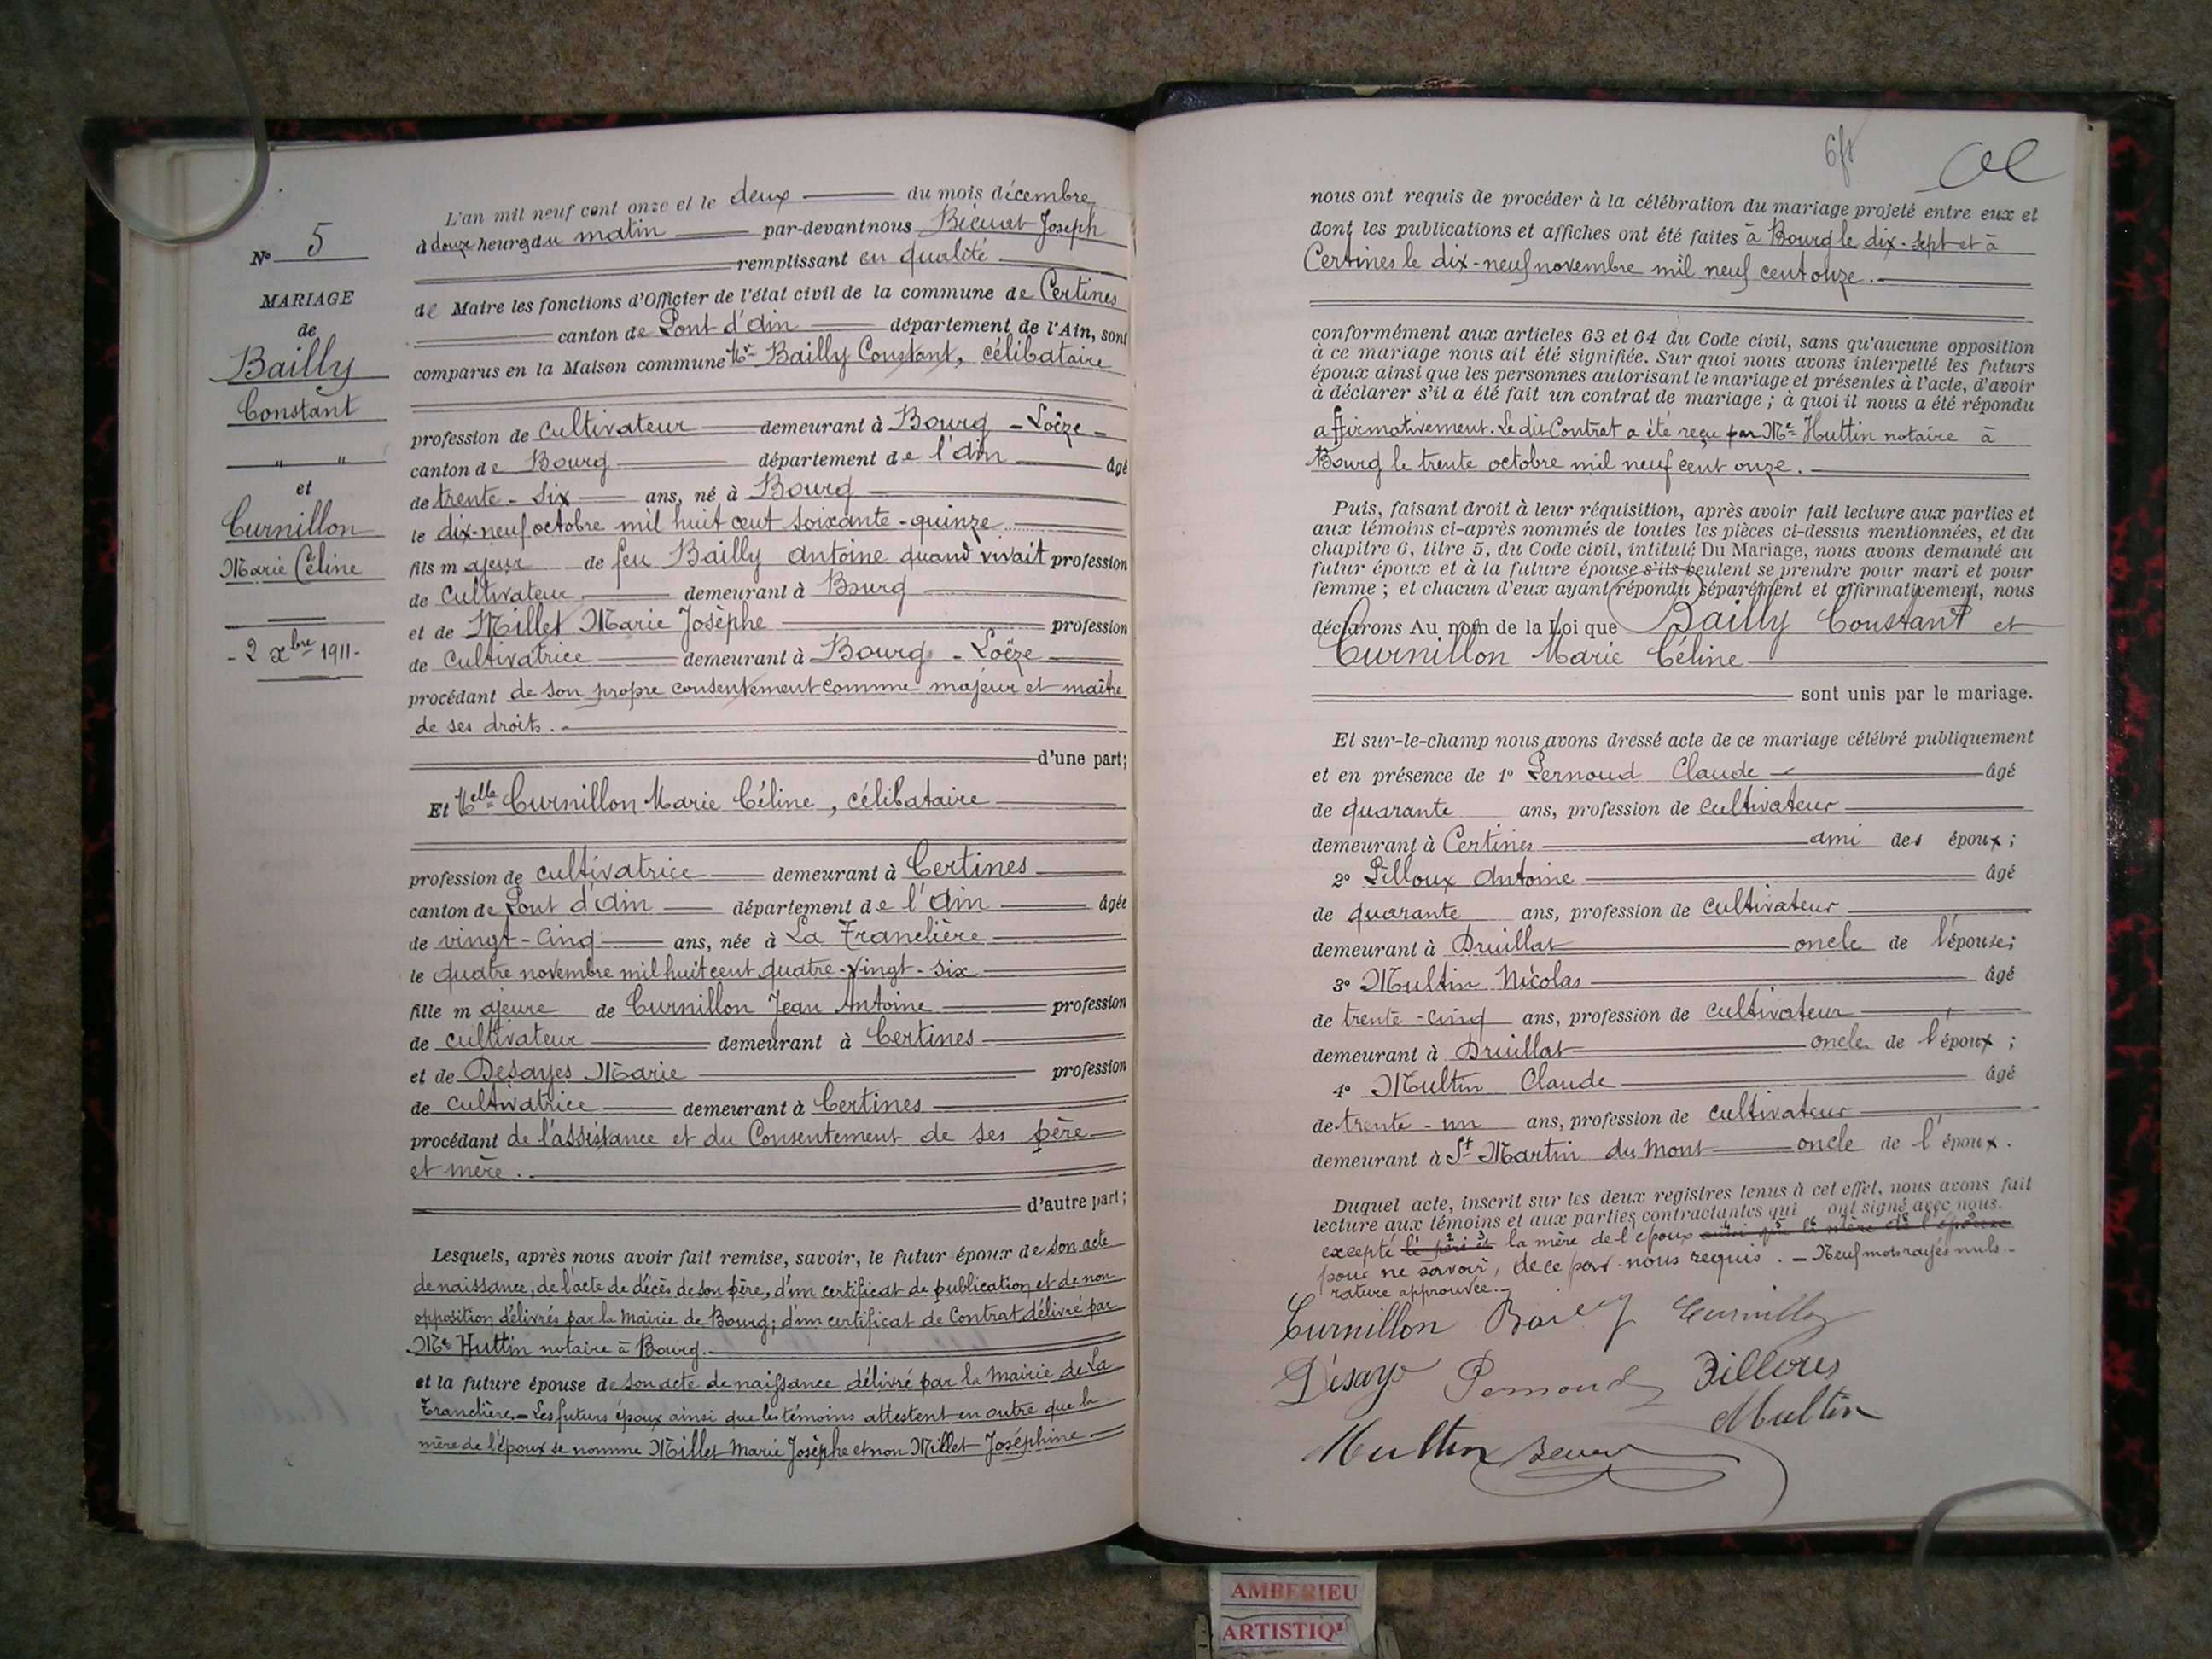 N° 5
MARIAGE
de
Bailly
Constant
" "
et
Curnillon
Marie Céline
- 2 Xbre 1911 -
L'an mil neuf cent onze et le deux du mois décembre
à heures du matin par-devant nous Joseph
remplissant en qualité
de Maire les fonctions d'Officier de l'état civil de la commune de Certines
canton de Pont d'Ain département de l'Ain, sont
comparus en la Maison commune Mr Bailly Constant, célibataire
profession de cultivateur demeurant à Bourg - Loëze -
canton de Bourg département de l'Ain âgé
de trente-six ans, né à Bourg
le dix-neuf octobre mil huit cent soixante-quinze
fils majeur de feu Bailly Antoine quand vivait profession
de cultivateur demeurant à Bourg
et de Millet Marie Josèphe profession
de cultivatrice demeurant à Bourg - Loëze
procédant de son propre consentement comme majeur et maître
de ses droits.
d'une part;
Et Melle Curnillon Marie Céline, célibataire
profession de cultivatrice demeurant à Certines
canton de Pont d'Ain département de l'Ain âgée
de vingt-cinq ans, née à La Tranclière
le quatre novembre mil huit cent quatre-vingt-six
fille majeure de Curnillon Jean Antoine profession
de cultivateur demeurant à Certines
et de Desayes Marie profession
de cultivatrice demeurant à Certines
procédant de l'assistance et du Consentement de ses père
et mère.
d'autre part;
Lesquels, après nous avoir fait remise, savoir, le futur époux de son acte
de naissance, de l'acte de décès de son père, d'un certificat de publication et de non
opposition délivrés par la Mairie de Bourg; d'un certificat de Contrat délivré par
Me Huttin notaire à Bourg.
et la future épouse de son acte de naissance délivré par la Mairie de La
Tranclière. - Les futurs époux ainsi que les témoins attestent en outre que la
mère de l'époux se nomme Millet Marie Josèphe et non Millet Joséphine
nous ont requis de procéder à la célébration du mariage projeté entre eux et
dont les publications et affiches ont été faites à Bourg le dix-sept et à
Certines le dix-neuf novembre mil neuf cent onze.
conformément aux articles 63 et 64 du Code civil, sans qu'aucune opposition
à ce mariage nous ait été signifiée. Sur quoi nous avons interpellé les futurs
époux ainsi que les personnes autorisant le mariage et présentes à l'acte, d'avoir
à déclarer s'il a été fait un contrat de mariage; à quoi il nous a été répondu
affirmativement. Le dit Contrat a été reçu par Me Huttin notaire à
Bourg le trente octobre mil neuf cent onze.
Puis, faisant droit à leur réquisition, après avoir fait lecture aux parties et
aux témoins ci-après nommés de toutes les pièces ci-dessus mentionnées, et du
chapitre 6, titre 5, du Code civil, intitulé Du Mariage, nous avons demandé au
futur époux et à la future épouse s'ils veulent se prendre pour mari et pour
femme; et chacun d'eux ayant répondu séparément et affirmativement, nous
déclarons Au nom de la Loi que Bailly Constant et
Curnillon Marie Céline
sont unis par le mariage.
Et sur-le-champ nous avons dressé acte de ce mariage célébré publiquement
et en présence de 1° Pernoud Claude âgé
de quarante ans, profession de cultivateur
demeurant à Certines ami des époux;
2° Pilloux Antoine âgé
de quarante ans, profession de cultivateur
demeurant à Druillat oncle de l'épouse;
3° Multin Nicolas âgé
de trente-cinq ans, profession de cultivateur
demeurant à Druillat oncle de l'époux;
4° Multin Claude âgé
de trente-un ans, profession de cultivateur
demeurant à St Martin du Mont oncle de l'époux.
Duquel acte, inscrit sur les deux registres tenus à cet effet, nous avons fait
lecture aux témoins et aux parties contractantes qui ont signé avec nous.
excepté le père et la mère de l'époux ainsi que la mère de l'épouse
pour ne savoir, de ce par nous requis. - Neuf mots rayés nuls -
rature approuvée.
Curnillon Bailly Curnillon
Désayes Pernoud Pilloux
Multin
Multin
AMBERIEU
ARTISTIQ